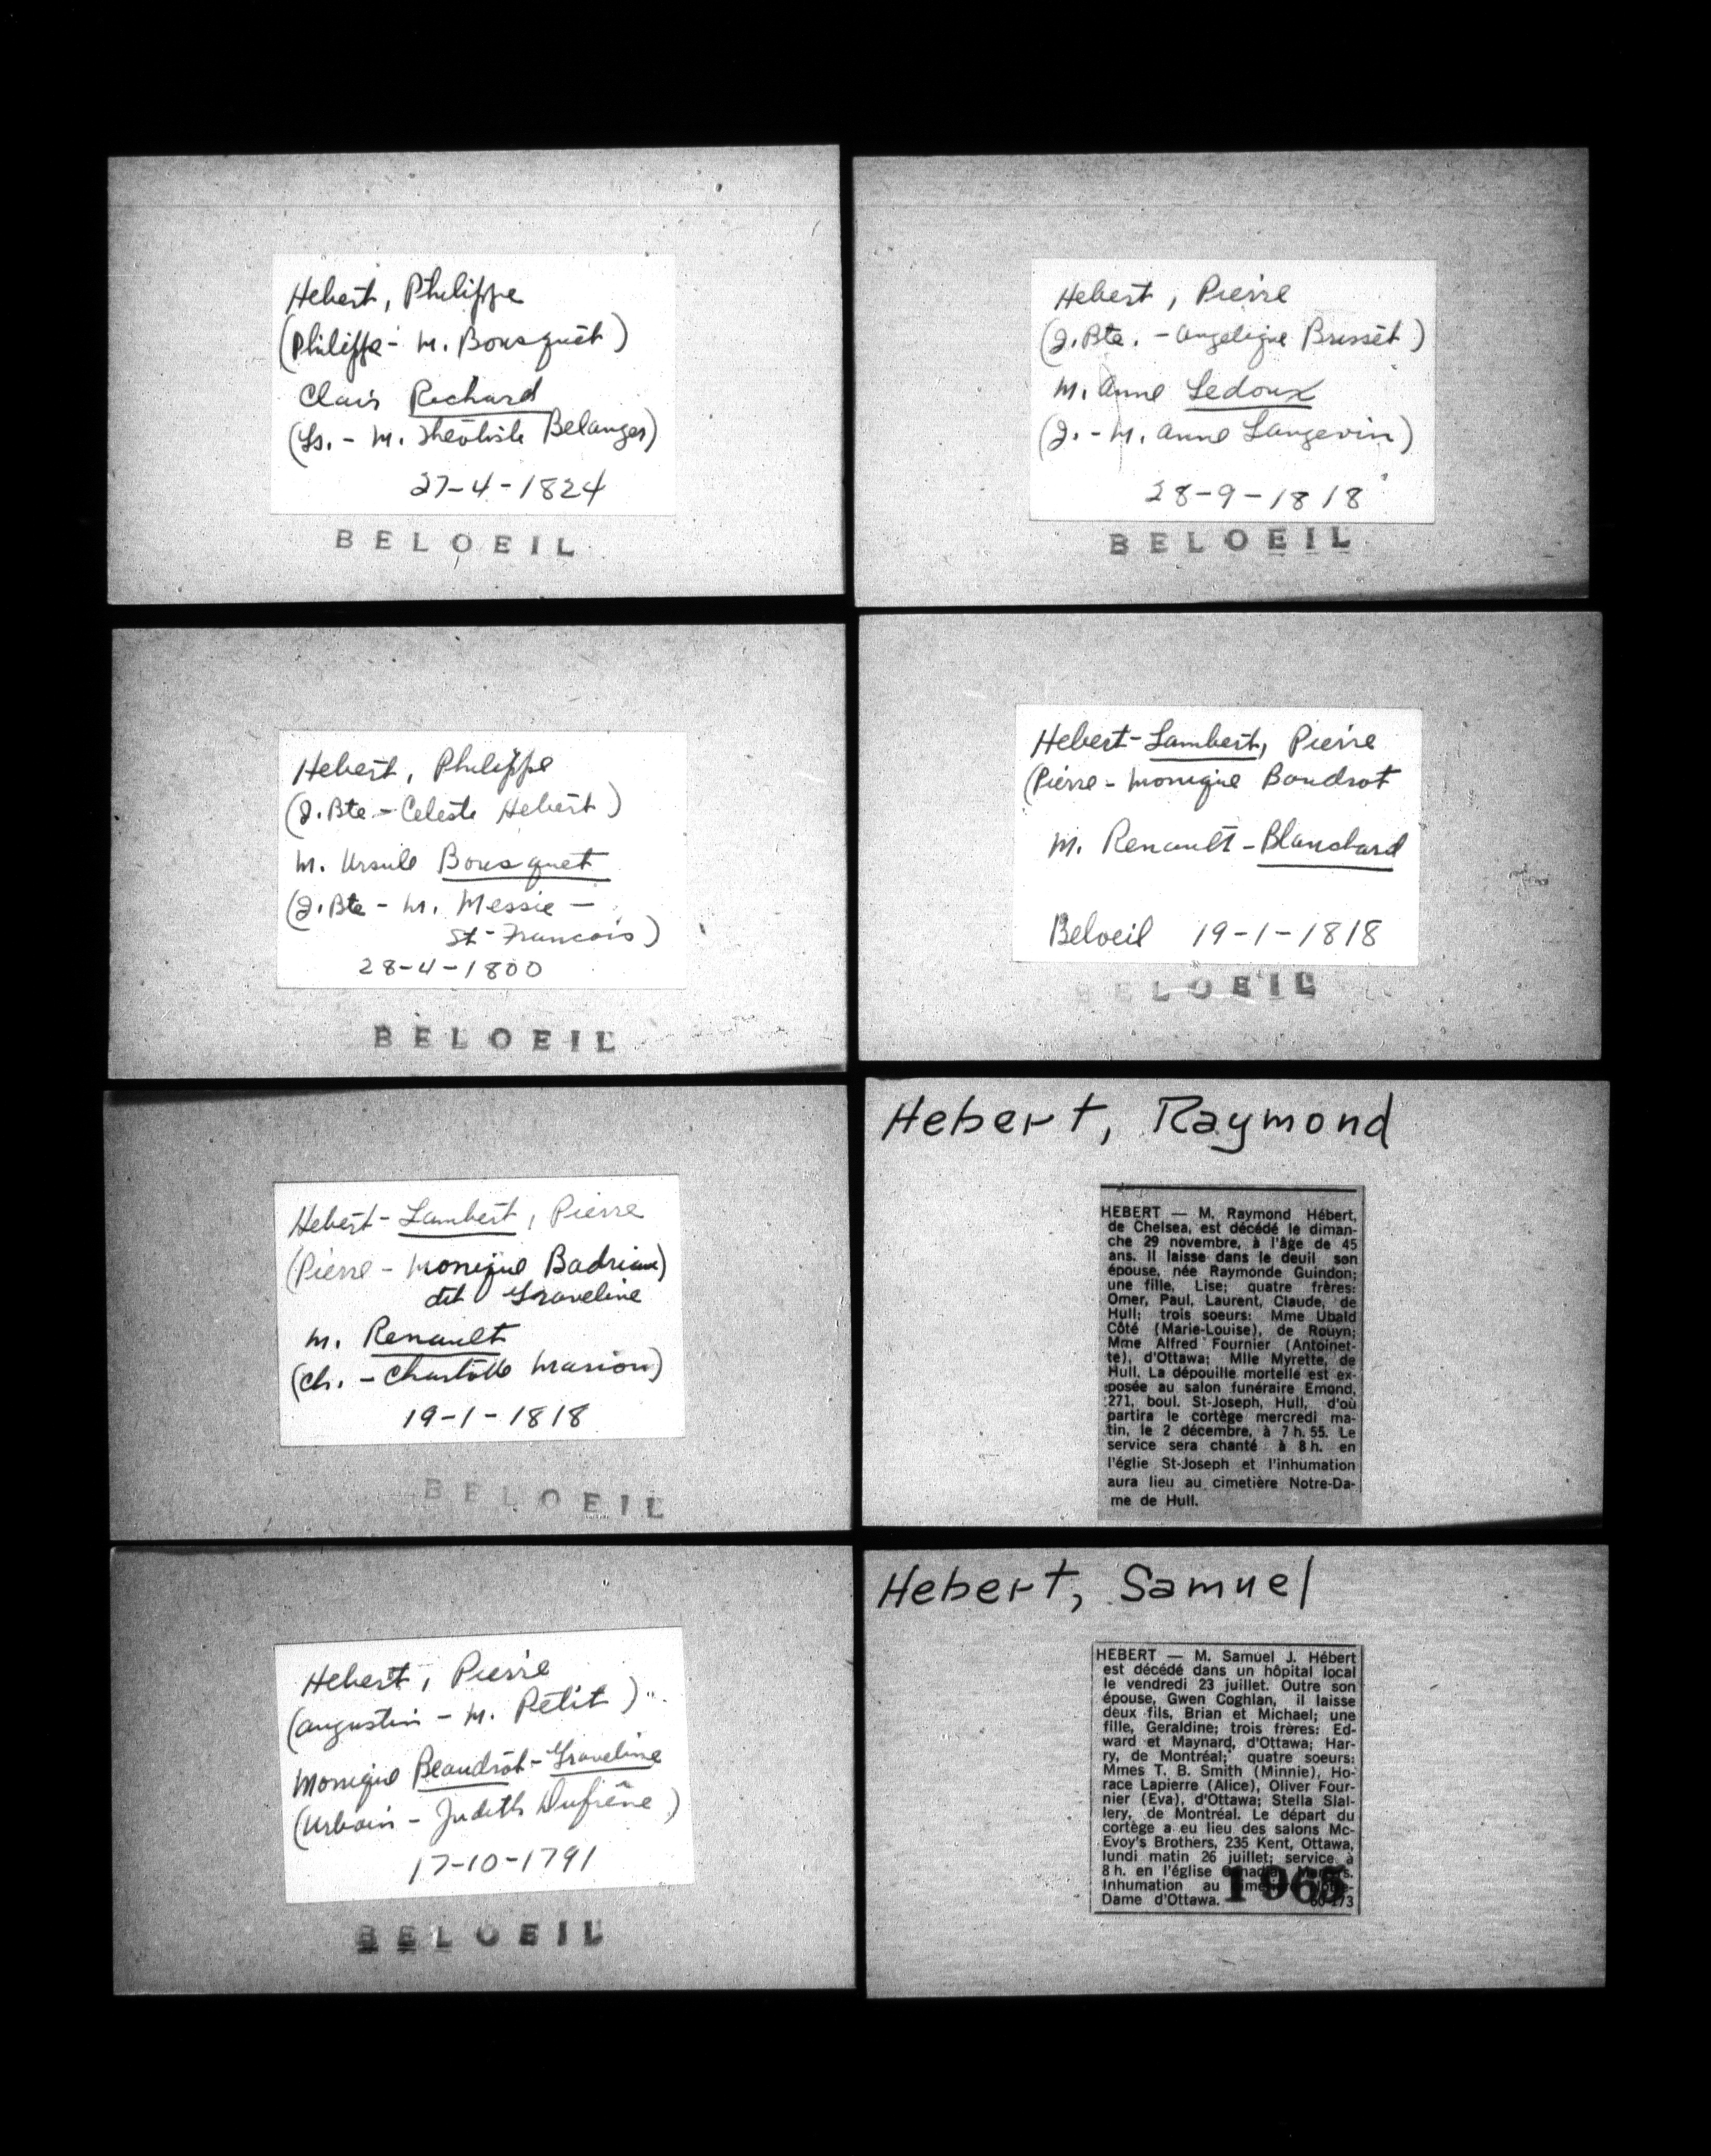 Hebert, Philippe
(Philippe - M. Bousquet)
Clair Richard
(Ls. - M. Théotiste Belanger)
27-4-1824
BELOEIL
Hebert, Pierre
(J. Bte. - Angelique Brisset)
M. Anne Ledoux
(J. - M. Anne Langevin)
28-9-1818
BELOEIL
Hebert, Philippe
(J. Bte - Celeste Hebert)
M. Ursule Bousquet
(J. Bte - M. Messie -
St-Francois)
28-4-1800
BELOEIL
Hebert-Lambert, Pierre
(Pierre - Monique Boudrot
M. Renault-Blanchard
Beloeil 19-1-1818
BELOEIL
Hebert-Lambert, Pierre
(Pierre - Monique Badriau)
dit Graveline
M. Renault
(Ch. - Charlotte Marion)
19-1-1818
BELOEIL
Hebert, Raymond
HEBERT — M. Raymond Hébert,
de Chelsea, est décédé le diman-
che 29 novembre, à l'âge de 45
ans. Il laisse dans le deuil son
épouse, née Raymonde Guindon;
une fille, Lise; quatre frères:
Omer, Paul, Laurent, Claude, de
Hull; trois soeurs: Mme Ubald
Côté (Marie-Louise), de Rouyn;
Mme Alfred Fournier (Antoinet-
te), d'Ottawa; Mlle Myrette, de
Hull. La dépouille mortelle est ex-
posée au salon funéraire Emond,
271, boul. St-Joseph, Hull, d'où
partira le cortège mercredi ma-
tin, le 2 décembre, à 7 h. 55. Le
service sera chanté à 8 h. en
l'églie St-Joseph et l'inhumation
aura lieu au cimetière Notre-Da-
me de Hull.
Hebert, Pierre
(Augustin - M. Petit)
Monique Beaudrot-Graveline
(Urbain - Judith Dufrêne)
17-10-1791
BELOEIL
Hebert, Samuel
HEBERT — M. Samuel J. Hébert
est décédé dans un hôpital local
le vendredi 23 juillet. Outre son
épouse, Gwen Coghlan, il laisse
deux fils, Brian et Michael; une
fille, Geraldine; trois frères: Ed-
ward et Maynard, d'Ottawa; Har-
ry, de Montréal; quatre soeurs:
Mmes T. B. Smith (Minnie), Ho-
race Lapierre (Alice), Oliver Four-
nier (Eva), d'Ottawa; Stella Slal-
lery, de Montréal. Le départ du
cortège a eu lieu des salons Mc-
Evoy's Brothers, 235 Kent, Ottawa,
lundi matin 26 juillet; service à
8 h. en l'église Canadian Martyrs.
Inhumation au cimetière Notre-
Dame d'Ottawa. 1965 60-173